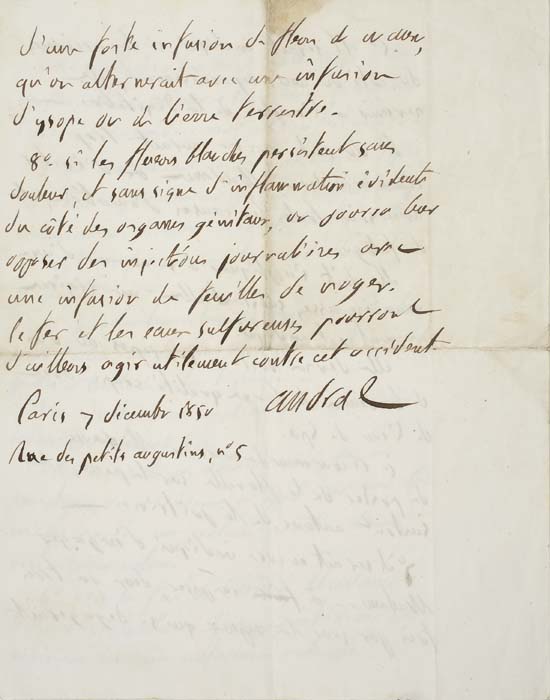 d'une forte infusion de fleurs de
qu'on alternerait avec une infusion
d'ysope ou de lierre terrestre.
8º. si les flueurs blanches persistent sans
douleur, et sans signe d'inflammation évidente
du côté des organes génitaux, on pourra leur
opposer des injections journalières avec
une infusion de feuilles de noyer.
le fer et les eaux sulfureuses pourront
d'ailleurs agir utilement contre cet accident.
Paris 7 décembre 1850 andral
Rue des petits augustins, nº 5